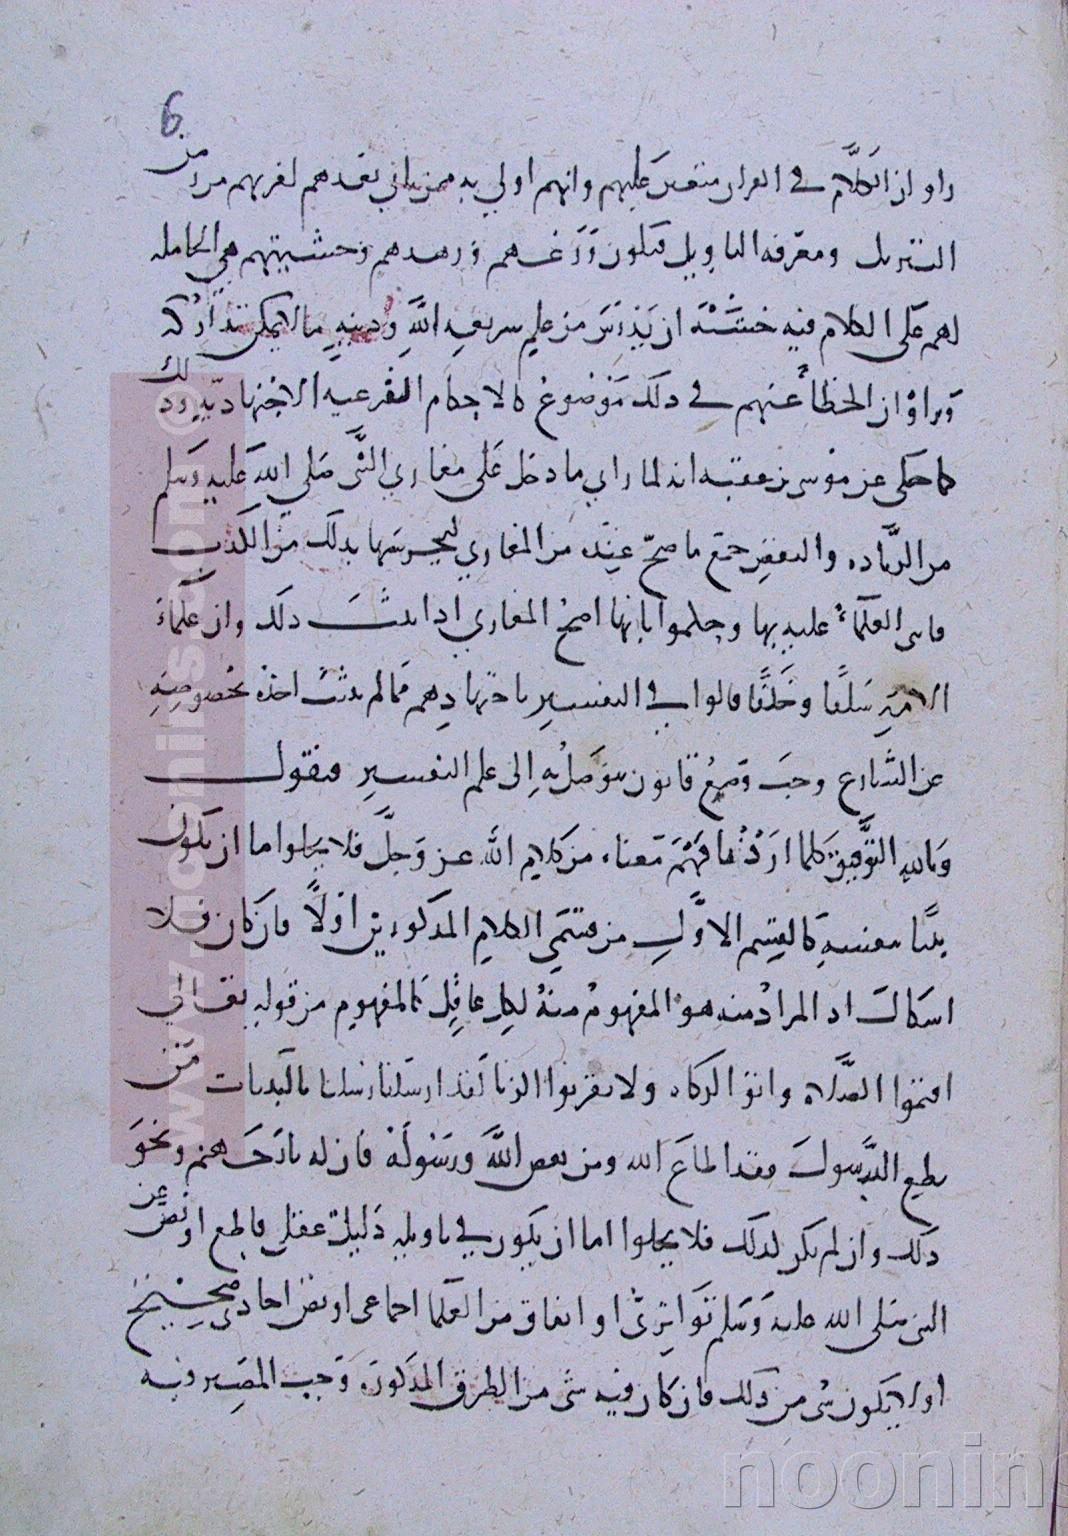 6
راو ان الكلام في القران متعين عليهم وانهم اولي به ممن ياتي بعدهم لقربهم من زمن
التنزيل ومعرفه التاويل فيكون ورعهم وزهدهم وخشيتهم هي الحامله
لهم على الكلام فيه خشية ان يندرس من علم شريعه الله ودينه ما لا يمكن تداركه
وراوا ان الخطأ عنهم في ذلك موضوع كالاحكام الفرعيه الاجتهاديه وذلك
كما حكى عن موسى بن عقبه انه لما راي ما دخل على مغازي النبي صلي الله عليه وسلم
من الزياده والنقص جمع ما صح عنده من المغازي ليحرسها بذلك من الكذب
فاثنى العلماء عليه بها وحكموا بانها اصح المغازي اذا ثبت ذلك وان علماء
الامة سلفا وخلفا قالوا في التفسير باجتهادهم فما لم يثبت اخذه بخصوصيته
عن الشارع وجب وضع قانون يتوصل به الى علم التفسير فنقول
وبالله التوفيق كلما اردنا فهم معناه من كلام الله عز وجل فلا يخلوا اما ان يكون
بينا بنفسه كالقسم الاول من قسمي الكلام المذكورين اولا فان كان فلا
اشكال اذ المراد منه هو المفهوم منه لكل عاقل كالمفهوم من قوله تعالي
اقيموا الصلاة واتوا الزكاه ولا تقربوا الزنا لقد ارسلنا رسلنا بالبينات من
يطع الرسول فقد اطاع الله ومن يعص الله ورسوله فان له نار جهنم ونحو
ذلك وان لم يكن لذلك فلا يخلوا اما ان يكون في تاويله دليل عقلي قاطع او نص عن
النبي صلى الله عليه وسلم تواتري او اتفاق من العلما اجماعي او نص احادي صحيح
اولا يكون شي من ذلك فان كان فيه شي من الطرق المذكورة وجب المصير فيه
www.noonins.com ©
noonins